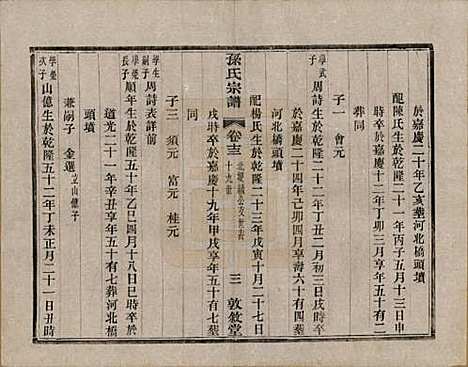 於嘉慶二十年乙亥葬河北橋頭墳
配陳氏生於乾隆二十一年丙子五月十三日申
時卒於嘉慶十二年丁卯三月
葬同
子一 會元
學武
周詩生於乾隆二十二年丁丑二月初三日戌時卒
於嘉慶二十四年己卯四月享壽六十有四葬
河北橋頭墳
配楊氏生於乾隆二十三年戊寅十月二十七日
戌時卒於嘉慶十九年甲戌享年五十有七葬
同
孫氏宗譜
卷十三
十九世
三
敦敘堂
子三 須元 富元 桂元
學生
嗣子
周詩表詳前
學榮
長子
順年生於乾隆五十年乙巳四月十八日巳時卒於
道光二十一年辛丑享年五十有七葬河北橋
頭墳
兼嗣子 金選 山億子
學榮
次子
山億生於乾隆五十二年丁未正月二十一日丑時